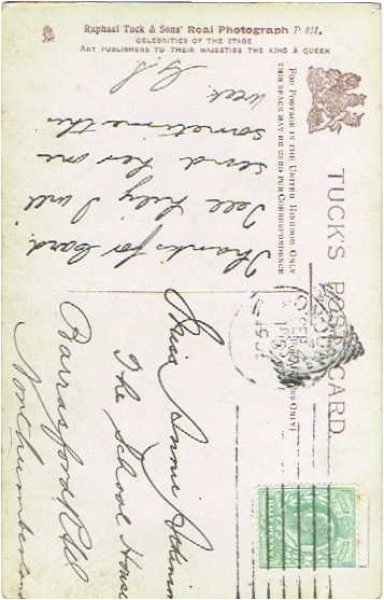 Raphael Tuck & Sons' Real Photograph P 831.
CELEBRITIES OF THE STAGE
ART PUBLISHERS TO THEIR MAJESTIES THE KING & QUEEN
TUCK'S POST CARD.
FOR POSTAGE IN THE UNITED KINGDOM ONLY
THIS SPACE MAY BE USED FOR CORRESPONDENCE
Thanks for Card.
Tell Lily I will
send her one
sometime this
week.
Miss Annie
The School House
Barrasford
Northumberland